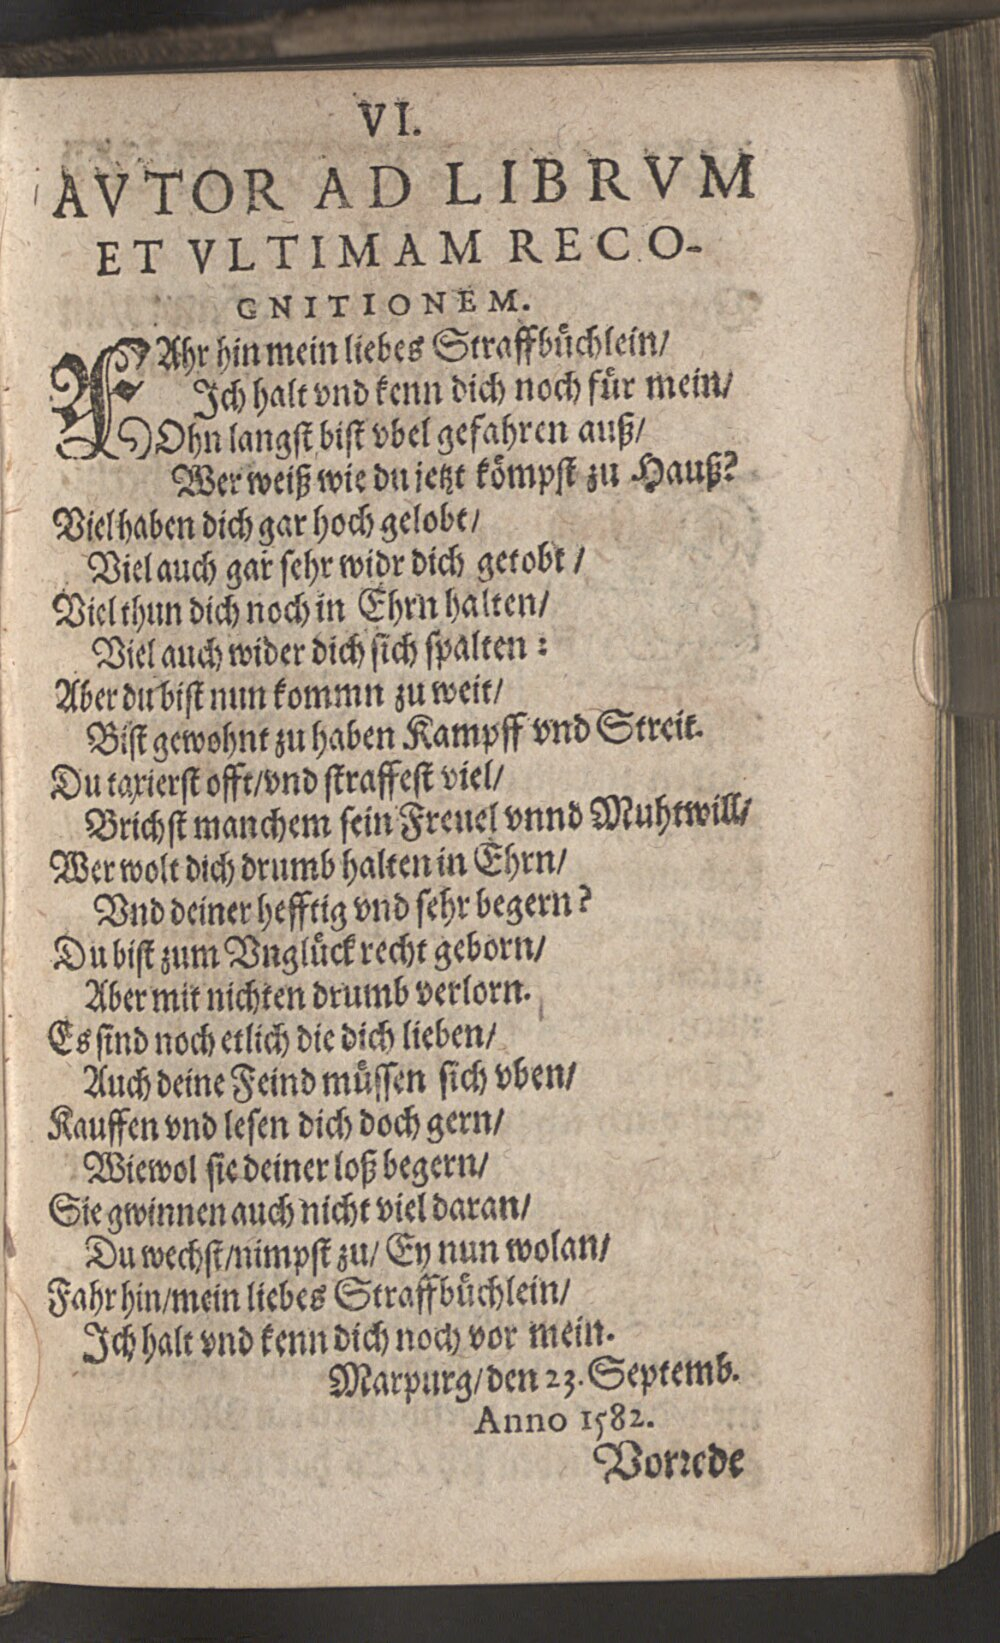 VI.
AVTOR AD LIBRVM
ET VLTIMAM RECO-
GNITIONEM.
FAhr hin mein liebes Straffbuͤchlein/
Ich halt vnd kenn dich noch fuͤr mein/
Ohn langst bist vbel gefahren auß/
Wer weiß wie du jetzt koͤmpst zu Hauß?
Viel haben dich gar hoch gelobt/
Viel auch gar sehr widr dich getobt/
Viel thun dich noch in Ehrn halten/
Viel auch wider dich sich spalten:
Aber du bist nun kommn zu weit/
Bist gewohnt zu haben Kampff vnd Streit.
Du taxierst offt/vnd straffest viel/
Brichst manchem sein Freuel vnnd Muhtwill/
Wer wolt dich drumb halten in Ehrn/
Vnd deiner hefftig vnd sehr begern?
Du bist zum Vngluͤck recht geborn/
Aber mit nichten drumb verlorn.
Es sind noch etlich die dich lieben/
Auch deine Feind muͤssen sich vben/
Kauffen vnd lesen dich doch gern/
Wiewol sie deiner loß begern/
Sie gwinnen auch nicht viel daran/
Du wechst/nimpst zu/ Ey nun wolan/
Fahr hin/mein liebes Straffbuͤchlein/
Ich halt vnd kenn dich noch vor mein.
Marpurg/den 23. Septemb.
Anno 1582.
Vorrede